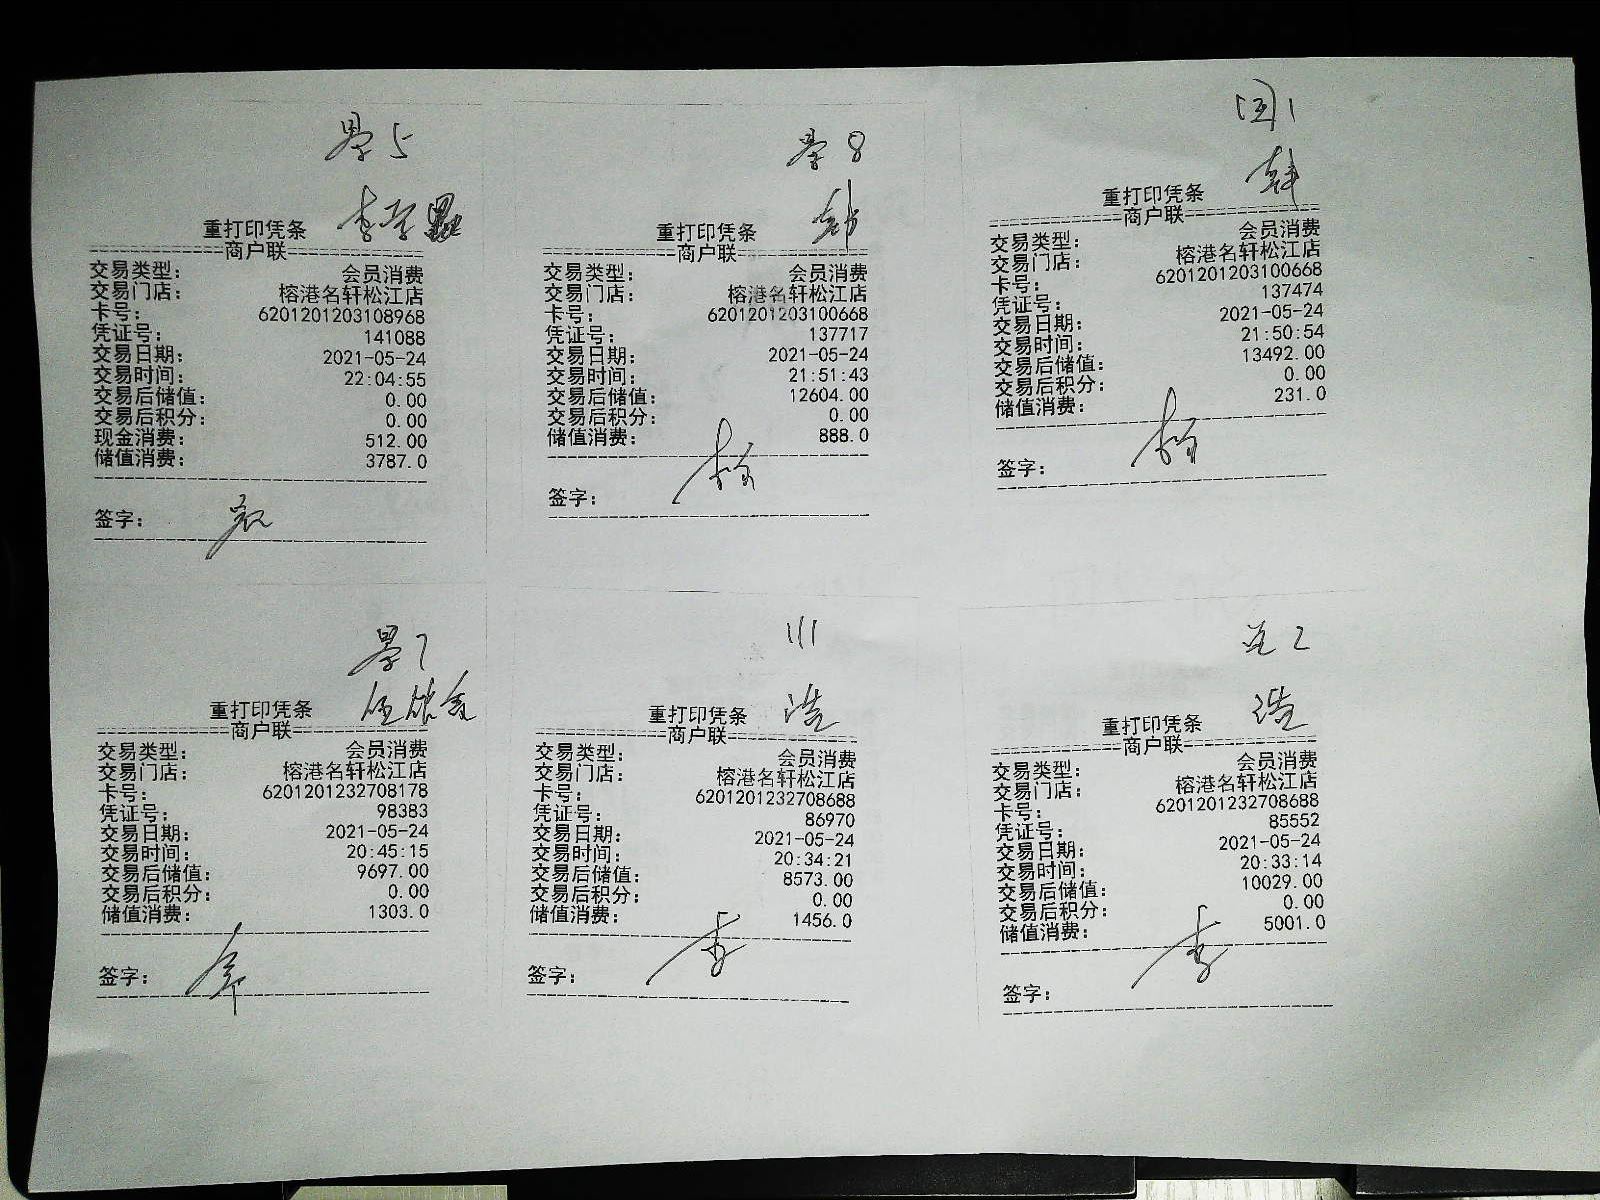 5
重打印凭条
==========商户联==========
交易类型: 会员消费
交易门店: 榕港名轩松江店
卡号: 6201201203108968
凭证号: 141088
交易日期: 2021-05-24
交易时间: 22:04:55
交易后储值: 0.00
交易后积分: 0.00
现金消费: 512.00
储值消费: 3787.0
签字:
8
重打印凭条
==========商户联==========
交易类型: 会员消费
交易门店: 榕港名轩松江店
卡号: 6201201203100668
凭证号: 137717
交易日期: 2021-05-24
交易时间: 21:51:43
交易后储值: 12604.00
交易后积分: 0.00
储值消费: 888.0
签字:
1
重打印凭条
==========商户联==========
交易类型: 会员消费
交易门店: 榕港名轩松江店
卡号: 6201201203100668
凭证号: 137474
交易日期: 2021-05-24
交易时间: 21:50:54
交易后储值: 13492.00
交易后积分: 0.00
储值消费: 231.0
签字:
7
重打印凭条
==========商户联==========
交易类型: 会员消费
交易门店: 榕港名轩松江店
卡号: 6201201232708178
凭证号: 98383
交易日期: 2021-05-24
交易时间: 20:45:15
交易后储值: 9697.00
交易后积分: 0.00
储值消费: 1303.0
签字:
111
浩
重打印凭条
==========商户联==========
交易类型: 会员消费
交易门店: 榕港名轩松江店
卡号: 6201201232708688
凭证号: 86970
交易日期: 2021-05-24
交易时间: 20:34:21
交易后储值: 8573.00
交易后积分: 0.00
储值消费: 1456.0
签字: 李
2
浩
重打印凭条
==========商户联==========
交易类型: 会员消费
交易门店: 榕港名轩松江店
卡号: 6201201232708688
凭证号: 85552
交易日期: 2021-05-24
交易时间: 20:33:14
交易后储值: 10029.00
交易后积分: 0.00
储值消费: 5001.0
签字: 李